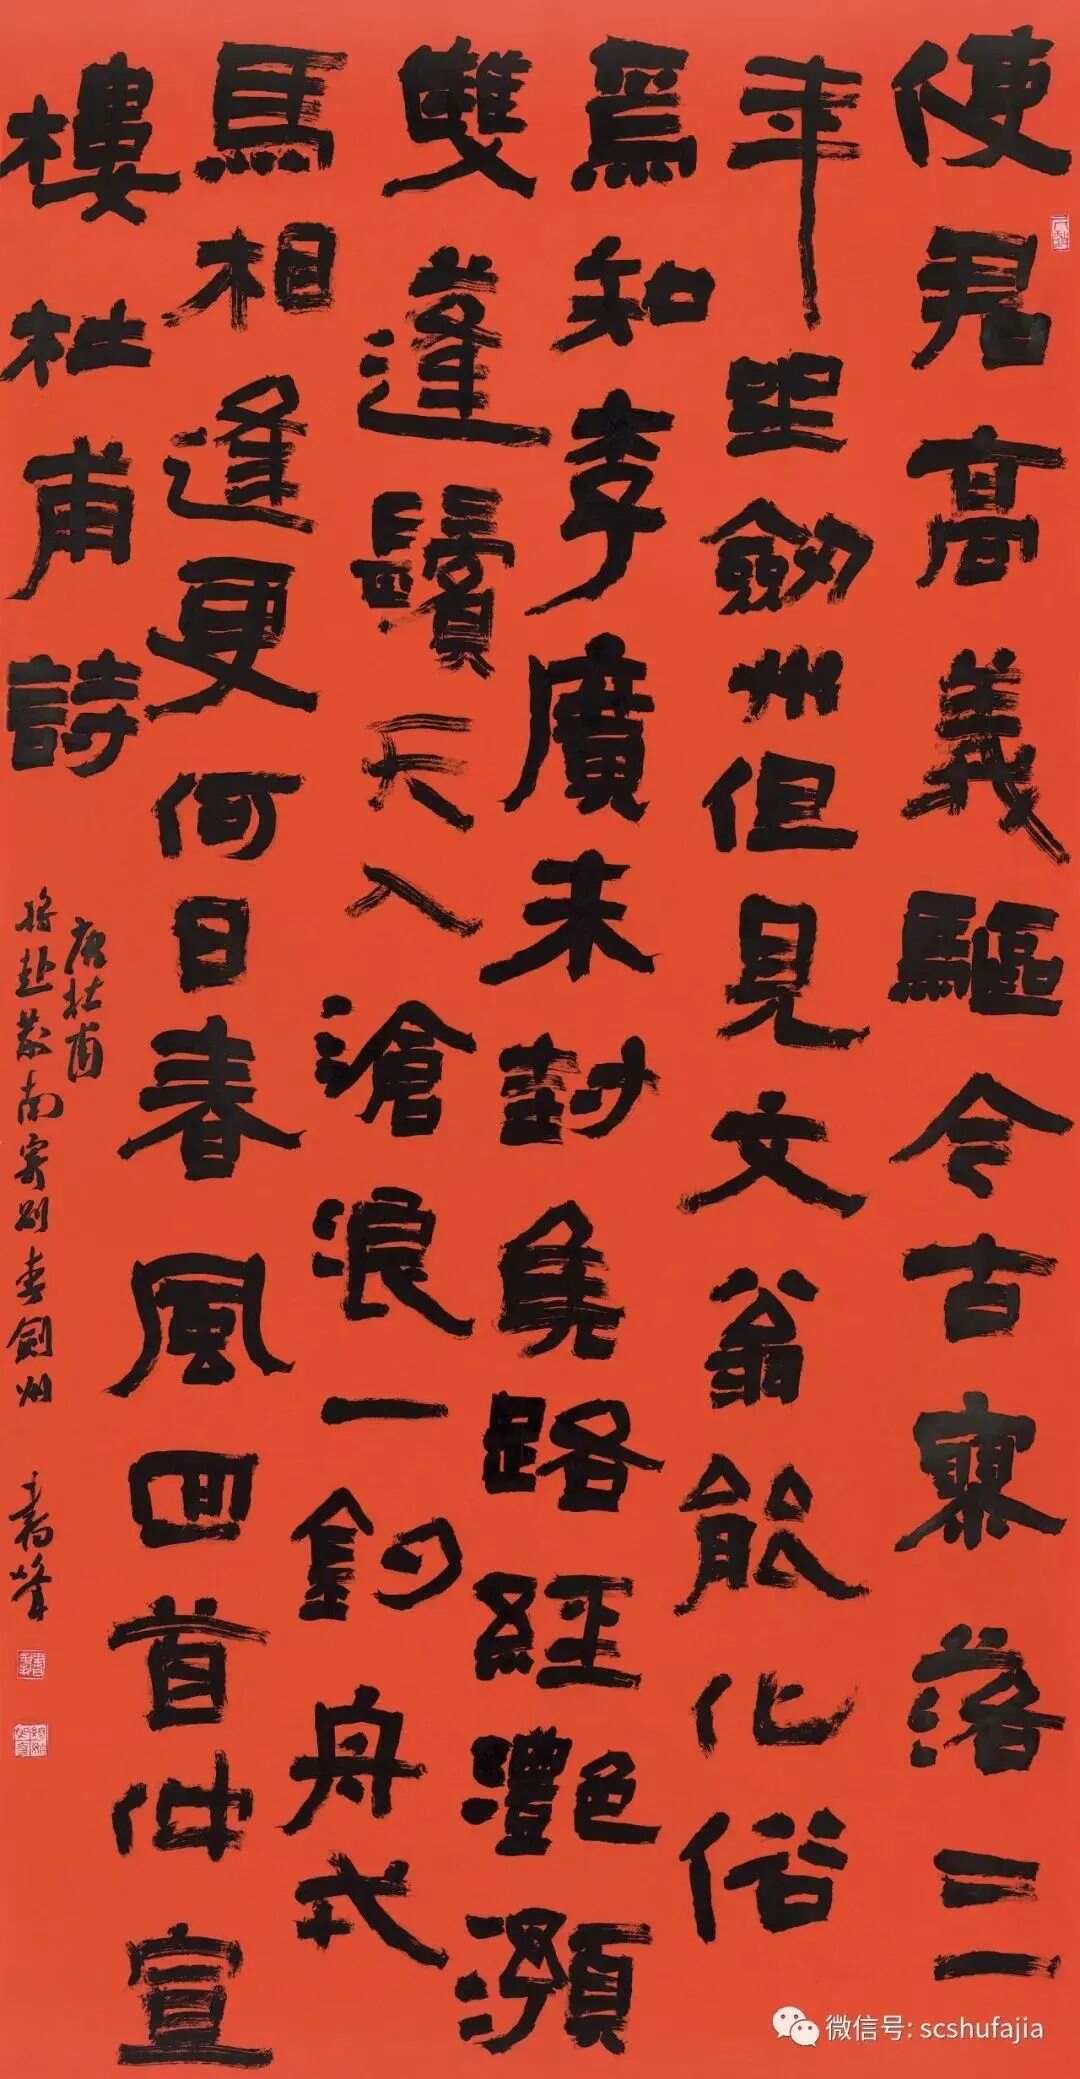 使君高義驅今古寥落三
年坐劒州但見文翁能化俗
焉知李廣未封侯路經灩澦
雙蓬鬢天入滄浪一釣舟戎
馬相逢更何日春風回首仲宣
樓杜甫詩
唐杜甫
將赴荊南寄別李劍州
微信号: scshufajia